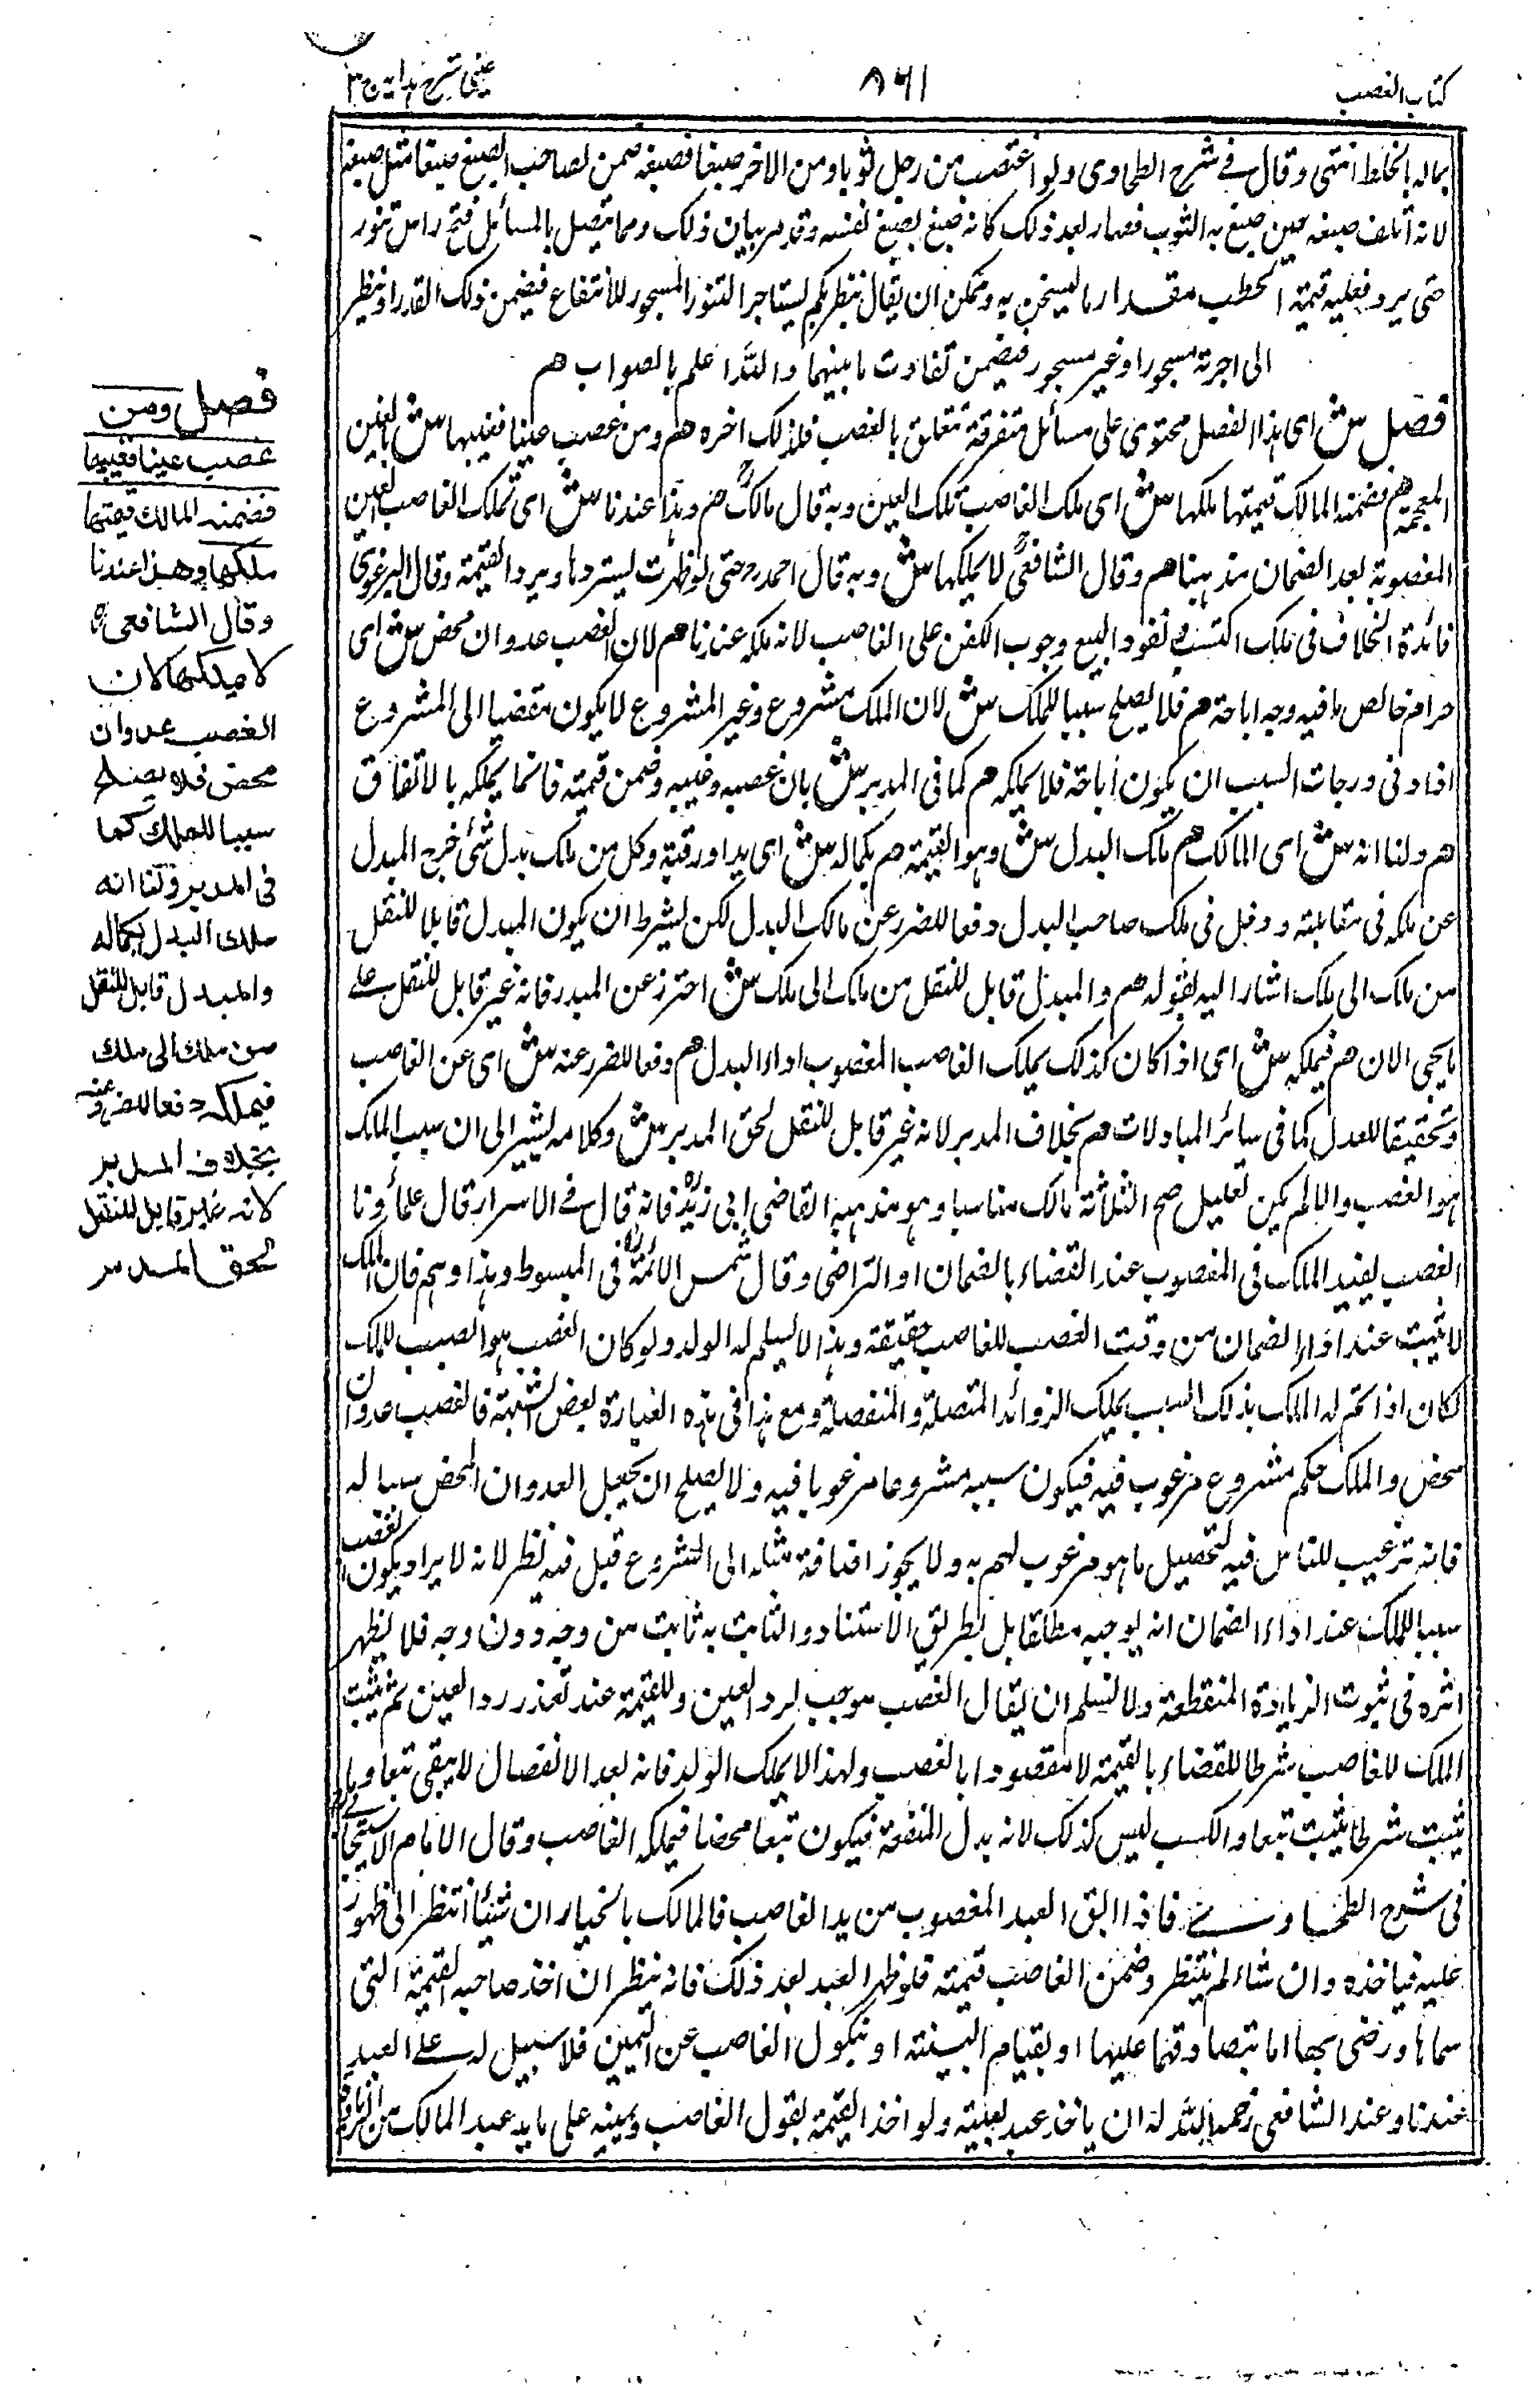 كتاب الغصب
٨٦١
عينى شرح هداية ج ٣
بماله بالخلط انتهى وقال فى شرح الطحاوى ولو اغتصب من رجل ثوبا ومن الاخر صبغا فصبغه ضمن لصاحب الصبغ صبغا مثل صبغه
لانه أتلف صبغه حين صبغ به الثوب فصار بعد ذلك كانه صبغ بصبغ نفسه وقد مر بيان ذلك ومما يتصل بالمسائل فتح راس تنور
حتى برد فعليه قيمة الحطب مقدار ما يسخن به ويمكن ان يقال ينظر بكم يستاجر التنور المسجور للانتفاع فيضمن ذلك القدر او ينظر
الى اجرته مسجورا وغير مسجور فيضمن تفاوت ما بينهما والله اعلم بالصواب هم
فصل ش اى هذا الفصل محتوى على مسائل متفرقة تتعلق بالغصب فلذلك اخره هم ومن غصب عينا فغيبها ش بالغين
المعجمة هم فضمنه المالك قيمتها ملكها ش اى ملك الغاصب تلك العين وبه قال مالك هم وهذا عندنا ش اى تملك الغاصب العين
المغصوبة بعد الضمان مذهبنا هم وقال الشافعى لا يملكها ش وبه قال احمد حتى لو ظهرت يستردها ويرد القيمة وقال البرغوى
فائدة الخلاف فى ملك اكتسب نفوذ البيع وجوب الكفن على الغاصب لانه ملكه عندنا هم لان الغصب عدوان محض ش اى
حرام خالص ما فيه وجه اباحة هم فلا يصلح سببا للملك ش لان الملك مشروع وغير المشروع لا يكون مقضيا الى المشروع
اذ ادنى درجات السبب ان يكون أباحة فلا يملكه هم كما فى المدبر ش بان غصبه وغيبه وضمن قيمته فانما يملكه بالاتفاق
هم ولنا انه ش اى المالك هم ملك البدل ش وهو القيمة هم بكماله ش اى يدا ورقبة وكل من ملك بدل شئ خرج المبدل
عن ملكه فى مقابلته ودخل فى ملك صاحب البدل دفعا للضرر عن مالك البدل لكن يشرط ان يكون المبدل قابلا للنقل
من ملك الى ملك اشار اليه بقوله هم والمبدل قابل للنقل من ملك الى ملك ش احترز عن المبدر فانه غير قابل للنقل على
ما يجى الان هم فيملكه ش اى اذا كان كذلك يملك الغاصب المغصوب اداء البدل هم دفعا للضرر عنه ش اى عن الغاصب
وتحقيقا للعدل كما فى سائر المبادلات هم بخلاف المدبر لانه غير قابل للنقل لحق المدبر ش وكلامه يشير الى ان سبب الملك
هو الغصب والا لم يكن تعليل صح الثلاثة مالك مناسبا وهو مذهب القاضى ابى زيد فانه قال فى الاسرار قال علماؤنا
الغصب يفيد الملك فى المغصوب عند القضاء بالضمان او التراضى وقال شمس الائمة فى المبسوط وهذا وهم فان الملك
لا يثبت عند اداء الضمان من وقت الغصب للغاصب حقيقة وهذا لا يسلم له الولد ولو كان الغصب هو السبب للملك
لكان اذا تم له الملك بذلك السبب يملك الزوائد المتصلة والمنفصلة ومع هذا فى هذه العبارة بعض الشبهة فالغصب عدوان
محض والملك حكم مشروع مرغوب فيه فيكون سببه مشروعا مرغوبا فيه ولا يصلح ان يجعل العدوان المحض سببا له
فانه ترغيب للناس فيه لتحصيل ما هو مرغوب لهم به ولا يجوز اضافة مثله الى الشروع قيل فيه نظر لانه لا يراد بكون الغصب
سببا للملك عند اداء الضمان انه يوجبه مطلقا بل بطريق الاستناد والثابت به ثابت من وجه دون وجه فلا يظهر
اثره فى ثبوت الزيادة المنقطعة ولا نسلم ان يقال الغصب موجب لرد العين وللقيمة عند تعذر رد العين ثم يثبت
الملك للغاصب شرطا للقضاء بالقيمة لا مقصودا بالغصب ولهذا لا يملك الولد فانه بعد الانفصال لا يبقى تبعا وما
يثبت شرطا يثبت تبعا والكسب ليس كذلك لانه بدل المنفعة فيكون تبعا محضا فيملكه الغاصب وقال الامام الاسبيجابى
فى شرح الطحاوى فاذا ابق العبد المغصوب من يد الغاصب فالمالك بالخيار ان شاء انتظر الى ظهور
عليه فياخذه وان شاء لم ينتظر وضمن الغاصب قيمته فلو ظهر العبد بعد ذلك فانه ينظر ان اخذ صاحبه القيمة التى
سماها ورضى بها اما بتصادقهما عليها او بقيام البينة او بنكول الغاصب عن اليمين فلا سبيل له على العبد
عندنا وعند الشافعى رحمه الله له ان ياخذ عبد بعينه ولو اخذ القيمة بقول الغاصب ويمينه على ما يد عبد المالك من الزيادة
فصل ومن
غصب عينا فغيبها
فضمنه المالك قيمتها
ملكها وهذا عندنا
وقال الشافعى رح
لا يملكها لان
الغصب عدوان
محض فلا يصلح
سببا للملك كما
فى المدبر ولنا انه
ملك البدل بكماله
والمبدل قابل للنقل
من ملك الى ملك
فيملكه دفعا للضرر عنه
بخلاف المدبر
لانه غير قابل للنقل
لحق المدبر